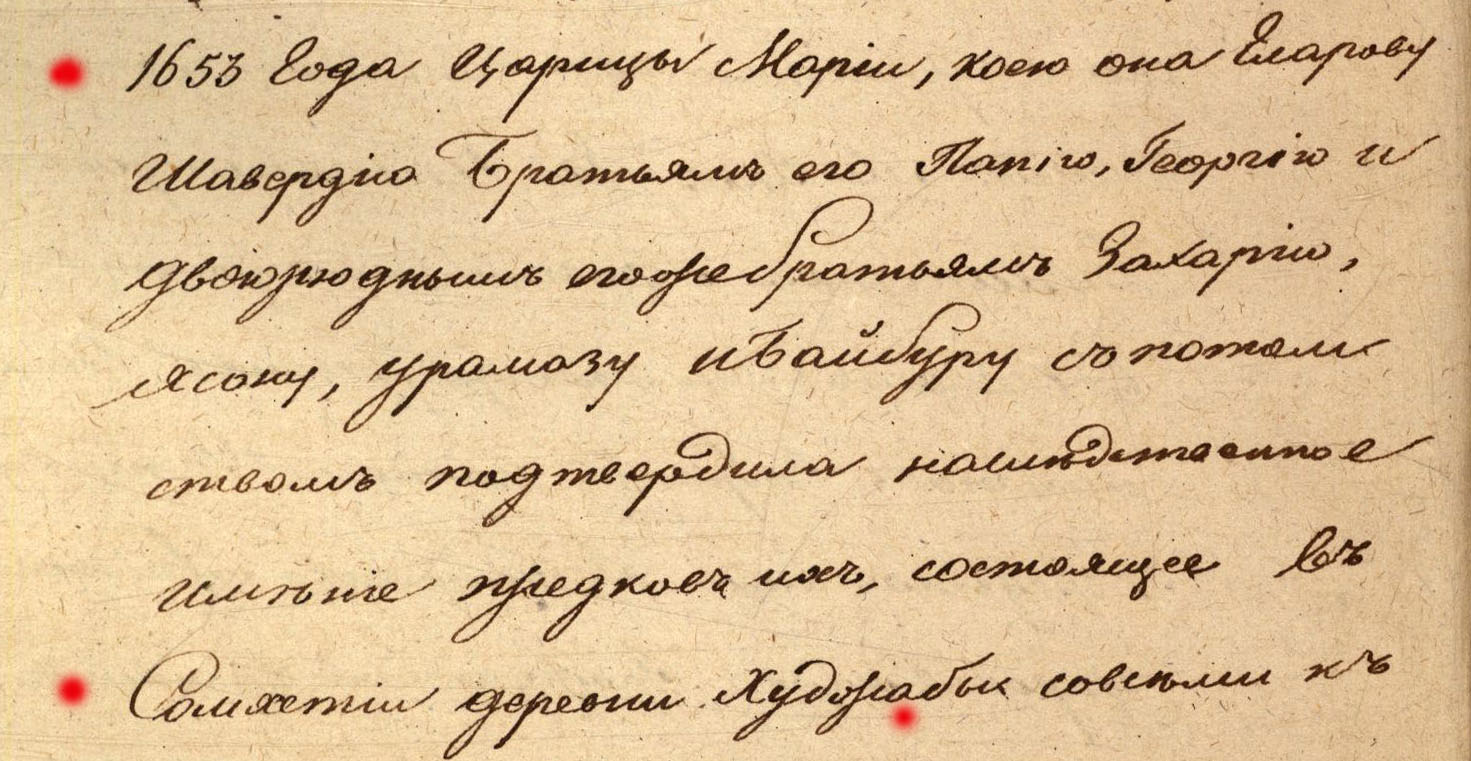 1653 Года Царицы Маріи, коею она Еларову
Шавердію Братьямъ его Папію, Георгію и
двоюроднымъ егожебратьямъ Захарію,
Ясону, урамазу иБайбуру съ потом
ствомъ подтвердила наслѣдственное
имѣніе предковъ ихъ, состоящее въ
Сомхетіи деревни Худжабы совсѣми къ